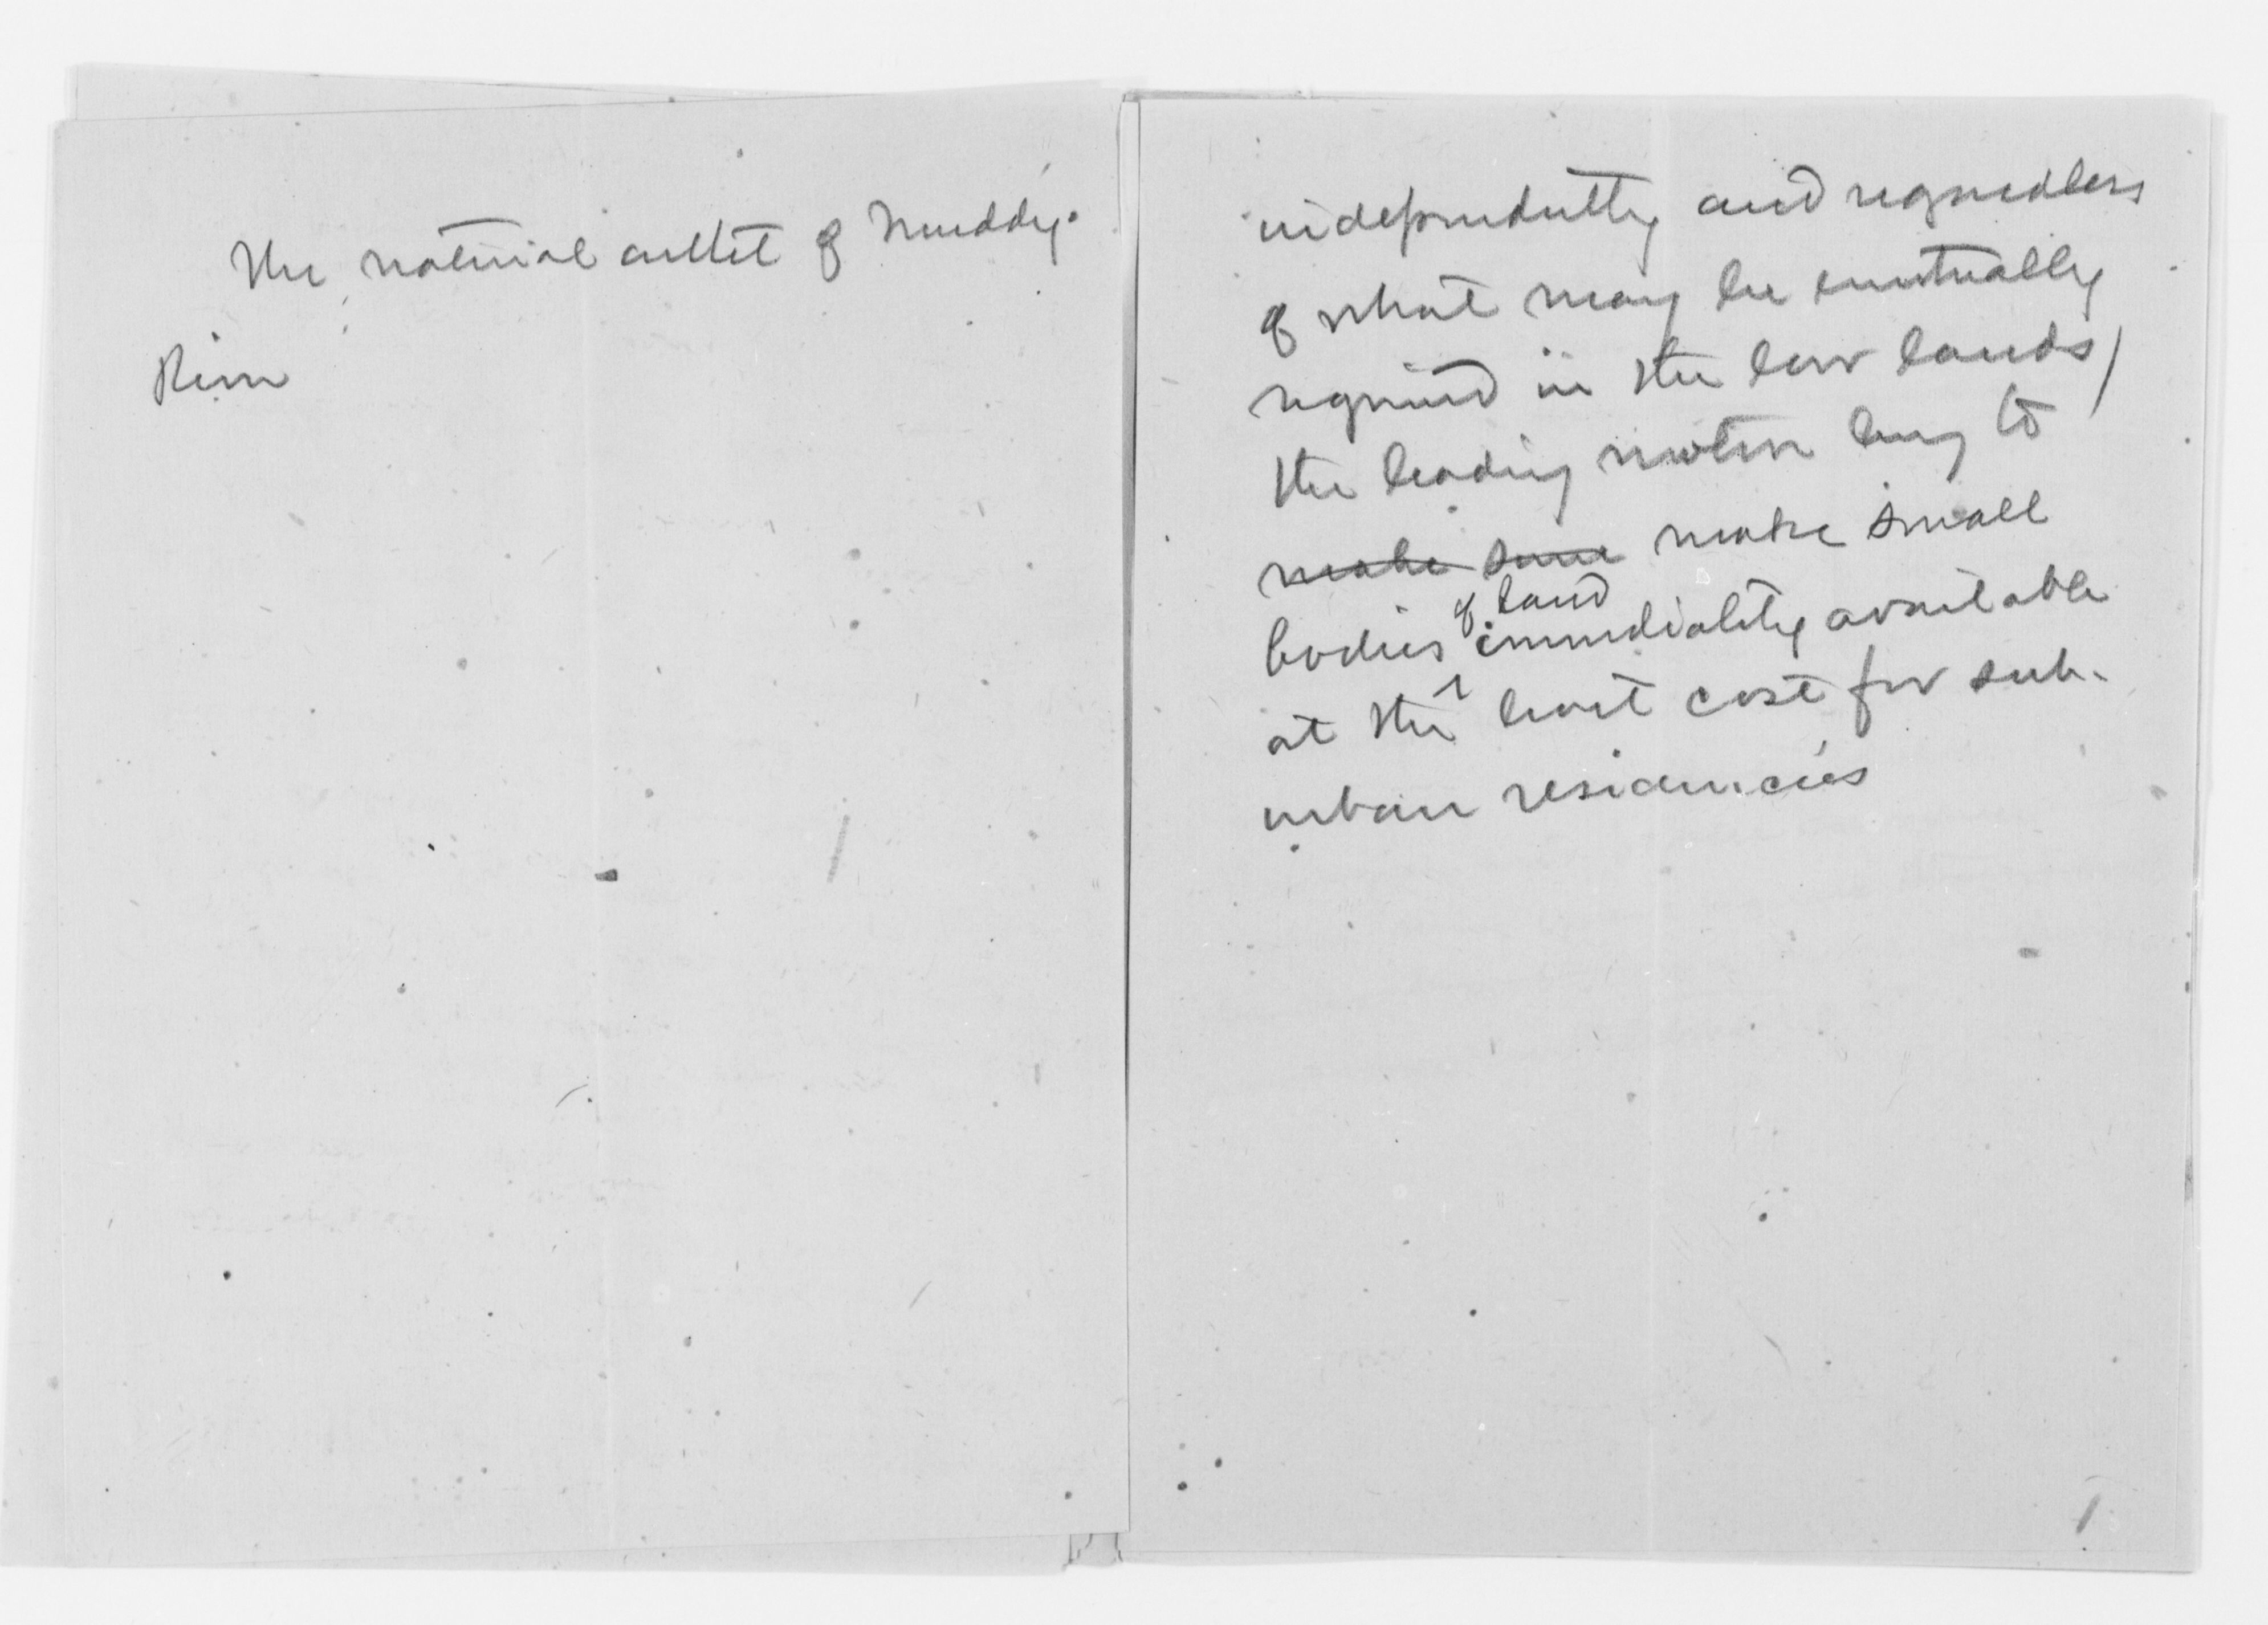 The natural outlet of Muddy
River
independently and regardless
of what may be eventually
required in the low lands,
the leading motive being to
make some make small
bodies of land immediately available
at the least cost for sub-
urban residencies